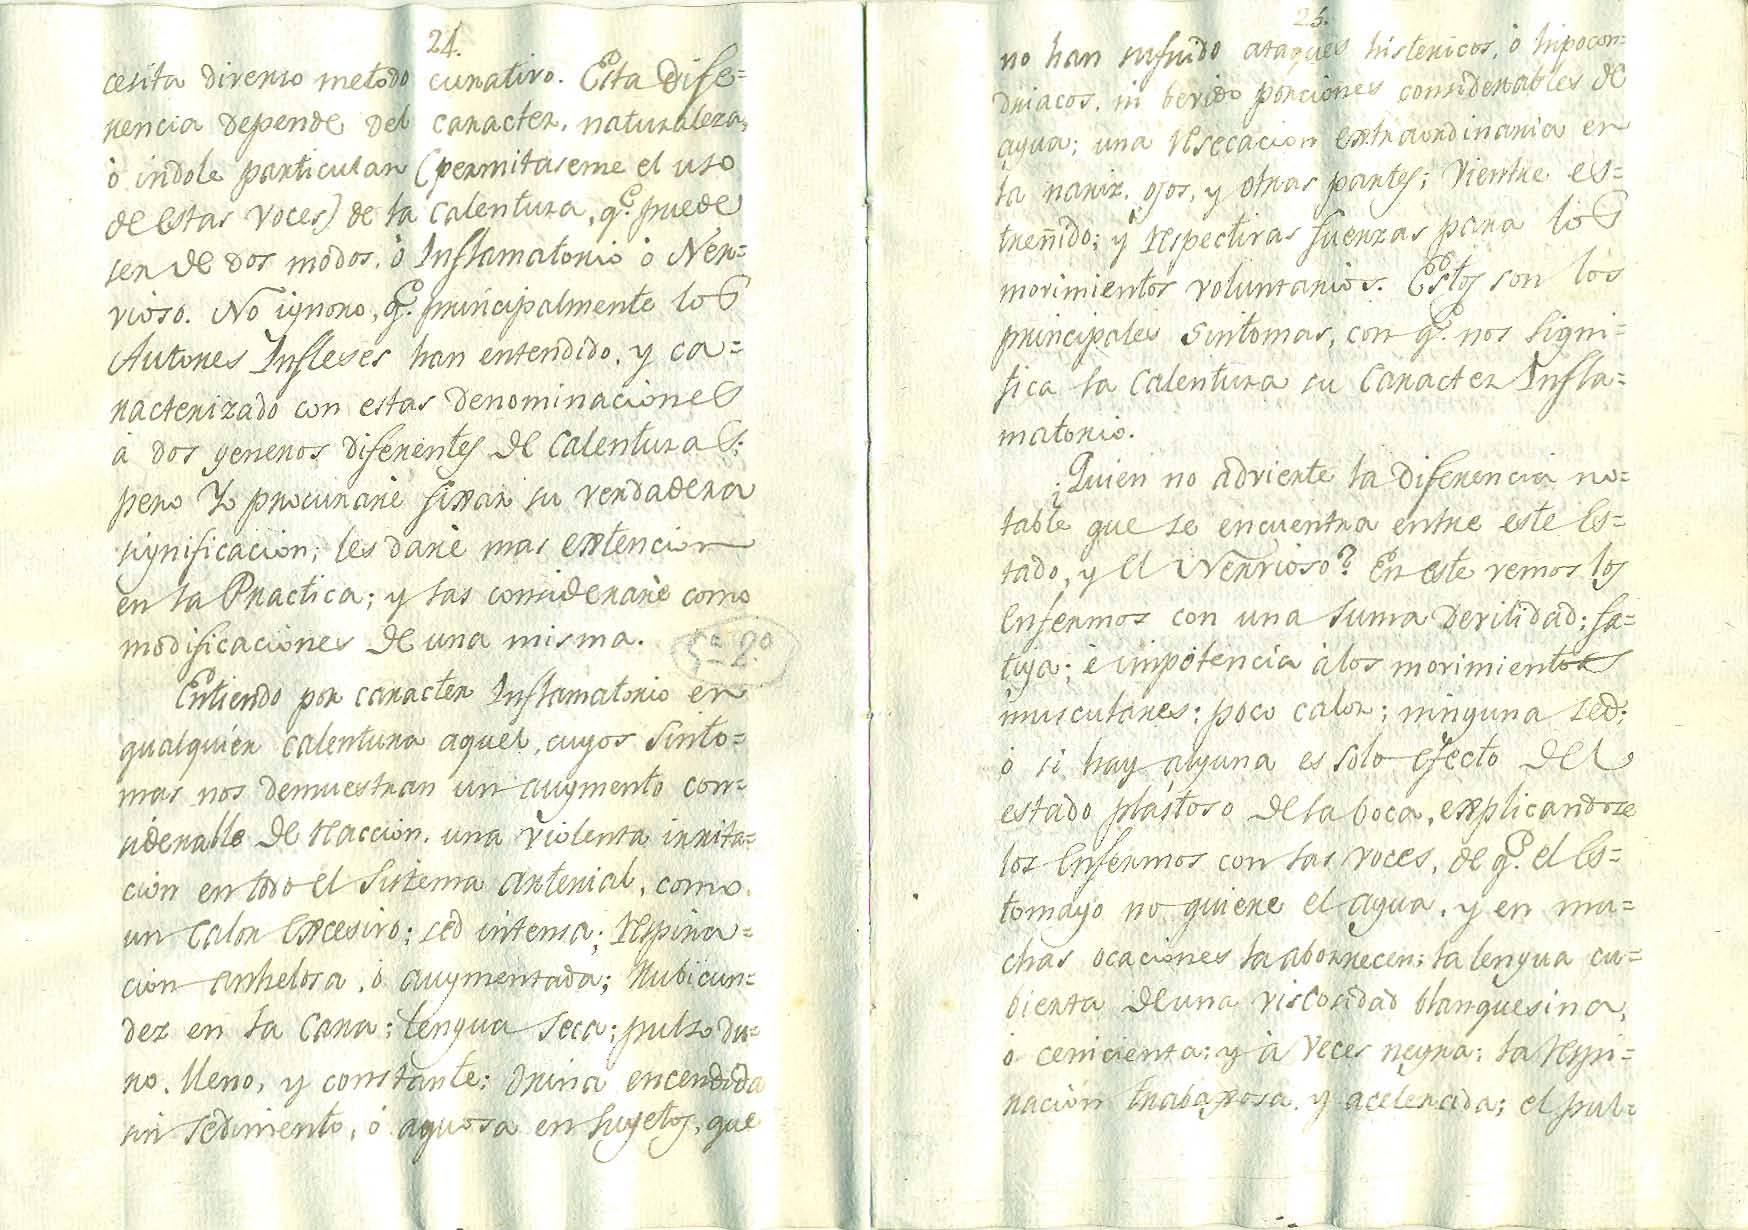 24.
cesita diverso metodo curativo. Esta dife=
rencia depende del caracter, naturaleza,
ò indole particular (permitaseme el uso
de estas voces) de la Calentura, q.e puede
ser de dos modos, ò Inflamatorio ò Ner=
vioso. No ignoro, q.e principalmente los
Autores Ingleses han entendido, y ca=
racterizado con estas denominaciones
à dos generos diferentes de Calenturas:
pero Yo procurarè fixar su verdadera
significacion; les darè mas extencion
en la Practica; y las considerarè como
modificaciones de una misma.
Entiendo por caracter Inflamatorio en
qualquier calentura aquel, cuyos Sinto=
mas nos demuestran un augmento con=
siderable de reaccion, una violenta irrita=
cion en todo el Sistema Arterial, como
un Calor Excesivo; sed intensa; Respira=
cion anhelosa, ò augmentada; Rubicun=
dez en la Cara; lengua seca; pulso du=
ro, lleno, y constante; Orina encendida
sin sedimento, ó aquosa en Sugetos, que
25.
no han sufrido ataques histericos, ò hipocon=
driacos, ni bevido porciones considerables de
agua; una resecacion extraordinaria en
la nariz, ojos, y otras partes; Vientre es=
treñido; y respectivas fuerzas para los
movimientos voluntarios. Estos son los
principales Sintomas, con q.e nos signi=
fica la Calentura su Caracter Infla=
matorio.
¿Quien no advierte la diferencia no=
table que se encuentra entre este Es=
tado, y el Nervioso? En este vemos los
Enfermos con una suma devilidad; fa=
tiga; è impotencia à los movimientos
musculares; poco calor; ninguna sed;
ò si hay alguna es solo efecto del
estado plastoso de la boca, explicandose
los Enfermos con las voces, de q.e el Es=
tomago no quiere el agua, y en mu=
chas ocaciones la aborrecen; la lengua cu=
bierta de una viscosidad blanquesina,
ò cenicienta; y à Veces negra; la respi=
racion trabaxosa, y acelerada; el pul=